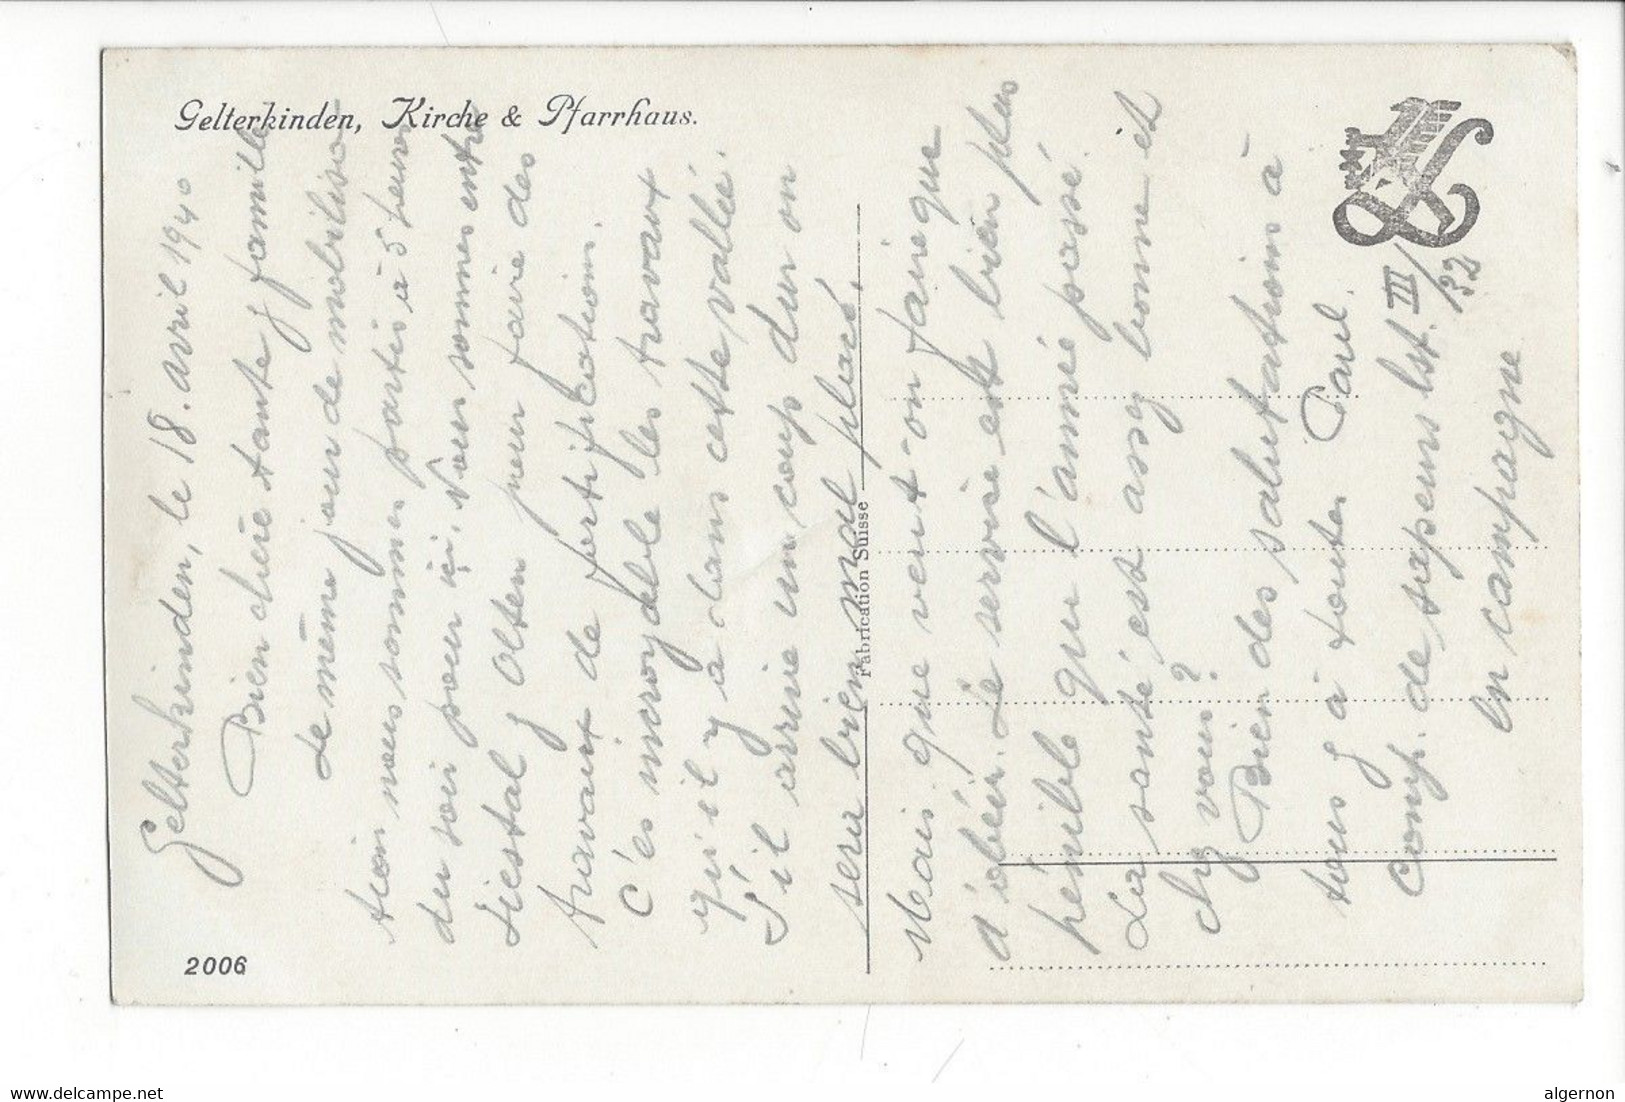 Gelterkinden, Kirche & Pfarrhaus.
Gelterkinden, le 18. avril 1940
Bien chère tante & famille
Le même jour de mobilisa-
tion nous sommes partis à 5 heures
du soir pour ici. Nous sommes entre
Liestal & Olten pour faire des
travaux de fortifications.
C'es incroyable les travaux
qu'il y a dans cette vallée.
S'il arrive un coup dur on
sera bien mal placé.
Mais que veut-on faire que
d'obéir. Le service est bien plus
pénible que l'année passé.
La santé est assez bonne et
chz vous?
Bien des salutations à
tous & à toutes Paul.
Comp. de sapeurs lst. III/32
en campagne
Fabrication Suisse
2006
delcampe.net
algernon